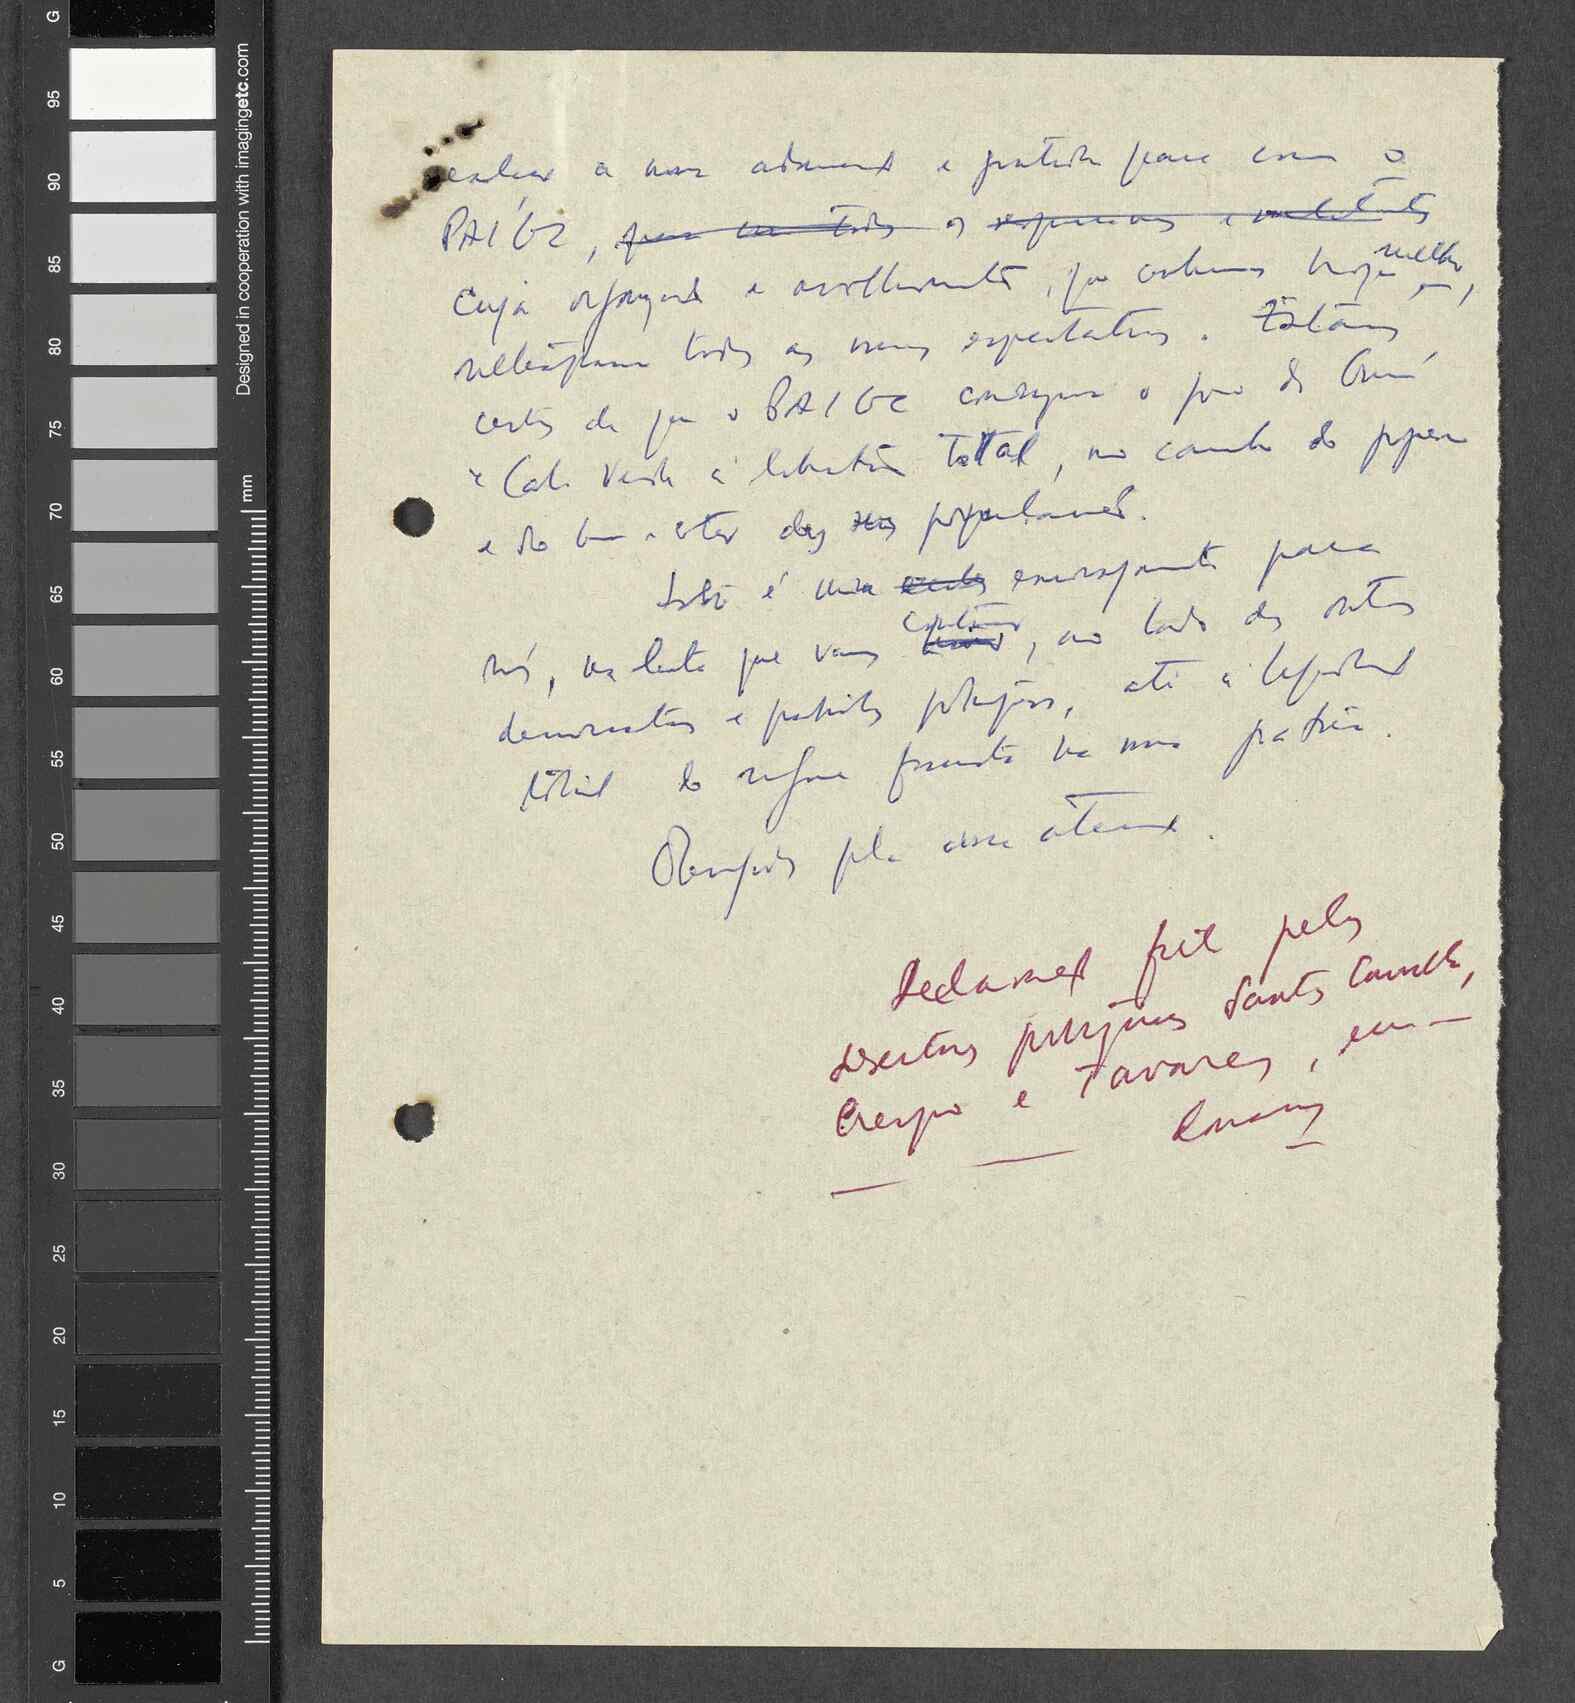 a nossa admiração e gratidão para com o
PAIGC, para com todos os responsáveis e militantes
cuja organização e acolhimento, que melhor
todas as nossas expectativas. Estamos
certos de que o PAIGC o povo da Guiné
e Cabo Verde à libertação total, no caminho do progresso
e do bem-estar das populações.
Isto é um encorajamento para
nós, na luta que vamos continuar, ao lado dos outros
democratas e patriotas portugueses, até à liquidação
total do regime fascista na nossa pátria.
Obrigados pela vossa atenção.
Declaração feita pelos
desertores portugueses Santos Carvalho,
Crespo e Tavares, em
Conakry
Designed in cooperation with imagingetc.com
mm
G
95
90
85
80
75
70
65
60
55
50
45
40
35
30
25
20
15
10
5
G